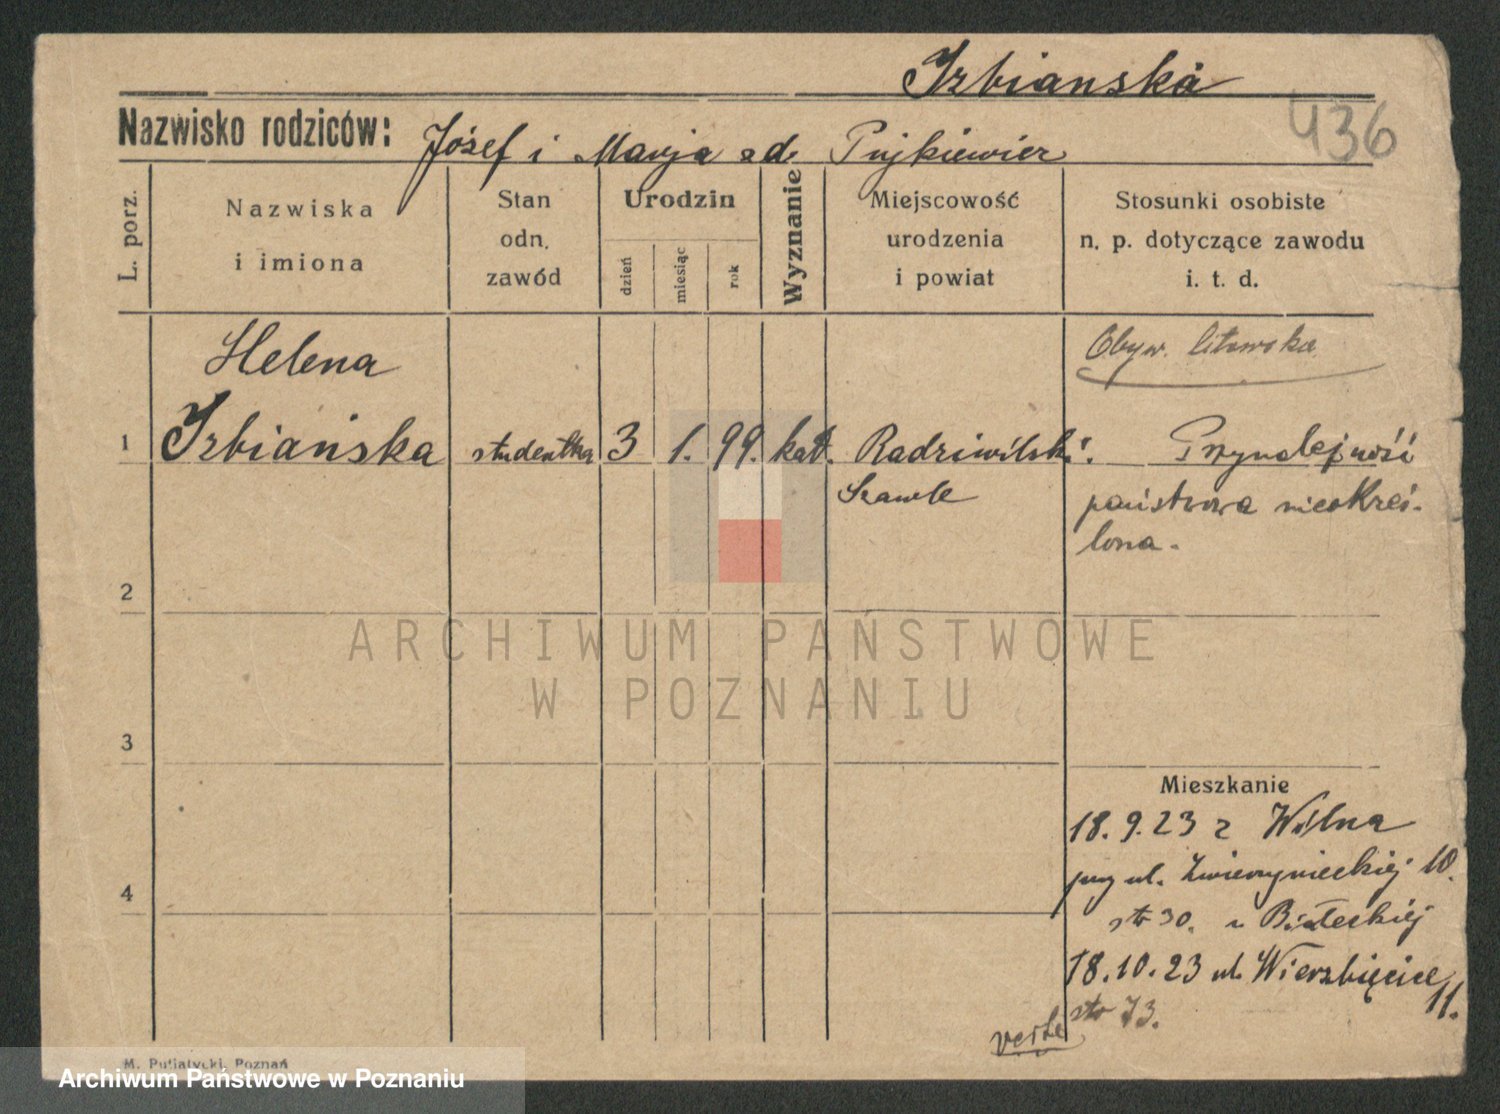 Izbianska
436
Nazwisko rodziców: Józef i Marja
L. porz.
Nazwiska
i imiona
Stan
odn.
zawód
Urodzin
dzień
miesiąc
rok
Wyznanie
Miejscowość
urodzenia
i powiat
Stosunki osobiste
n. p. dotyczące zawodu
i. t. d.
Obyw. litewska
Helena
1 Izbiańska studentka 3 1. 99. kat. Radziwilski. Przynależność
Szawle państwowa nieokreś-
lona.
2
ARCHIWUM PAŃSTWOWE
W POZNANIU
3
Mieszkanie
18. 9. 23 z Wilna
przy ul. Zwierzynieckiej 10.
str 30. u Białeckiej
4
18. 10. 23 ul. Wierzbięcice 11.
str 73.
verte
M. Putiatycki, Poznań
Archiwum Państwowe w Poznaniu